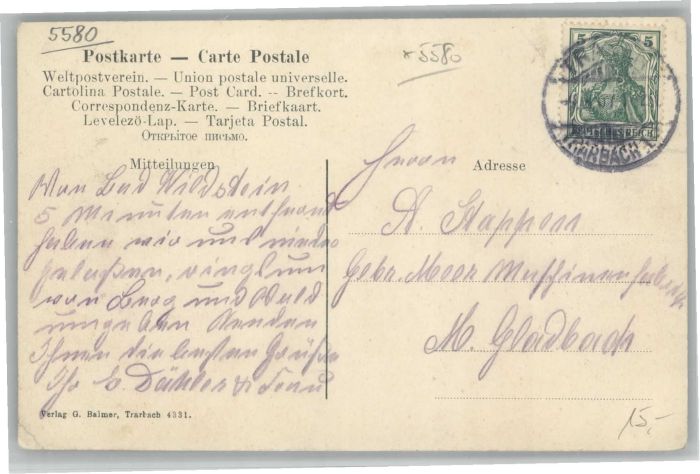 5580
*5580
Postkarte — Carte Postale
Weltpostverein. — Union postale universelle.
Cartolina Postale. — Post Card. -- Brefkort.
Correspondenz-Karte. — Briefkaart.
Levelező-Lap. — Tarjeta Postal.
Открытое письмо.
5 5
DEUTSCHES REICH
TRARBACH
Mitteilungen
Adresse
Von Bad Wildstein
5 Minuten entfernt
haben wir uns nieder
gelaßen, ringsum
von Berg und Wald
umgeben senden
Ihnen die besten Grüße
Ihr E. Dähler & Frau
Herrn
A. Stappen
Gebr. Meer Maschinenfabrik
M. Gladbach
Verlag G. Balmer, Trarbach 4331.
15,-